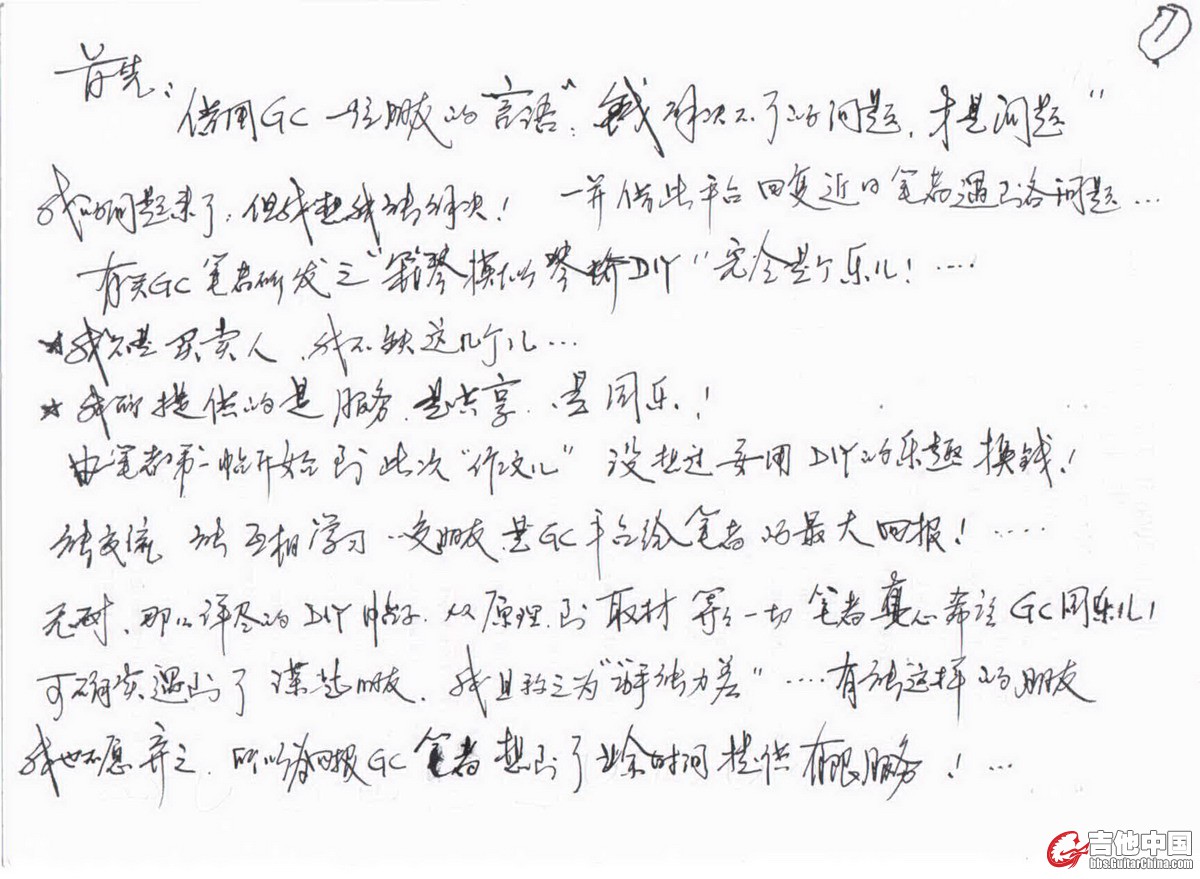 ①
首先:
借用GC一位朋友的言语“钱解决不了的问题,才是问题”
我的问题来了,但我想我能解决! 一并借此平台回复近日笔者遇到各问题…
有关GC笔者研发之“钢琴模拟琴桥DIY”完全是个乐儿!….
*我不是买卖人、我不缺这几个儿…
*我所提供的是服务、是共享、是同乐!
由笔者第一帖开始到此次“作文儿” 没想过要用DIY的乐趣换钱!
能交流 能互相学习 交朋友是GC平台给笔者的最大回报!…..
无耐、那么详尽的DIY帖子 从原理到取材等等一切 笔者真心希望GC同乐儿!
可确实遇到了某些朋友、我且称之为“动手能力差”….有能这样的朋友
我也不愿弃之、所以为回报GC笔者想到了业余时间提供有限服务!…
吉他中国
bbs.GuitarChina.com